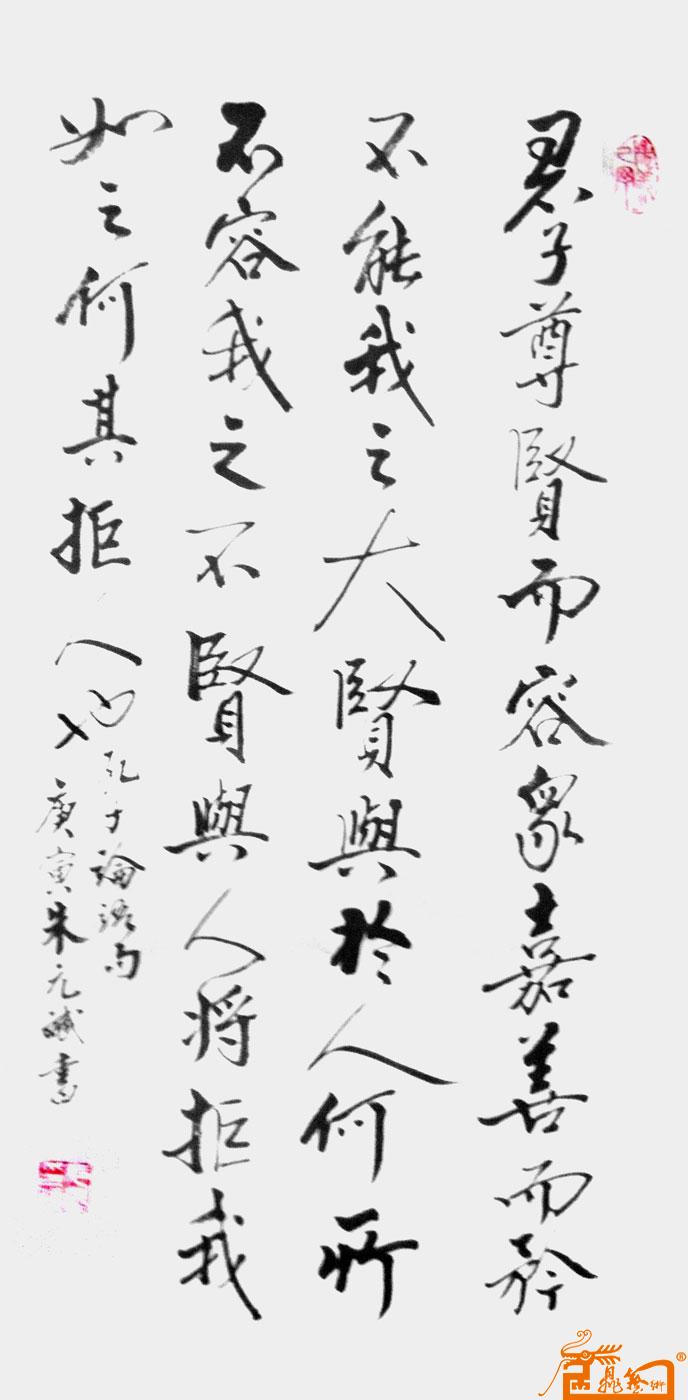 君子尊賢而容衆嘉善而矜
不能我之大賢與於人何所
不容我之不賢與人將拒我
如之何其拒人也
孔子論語句
庚寅朱元誠書